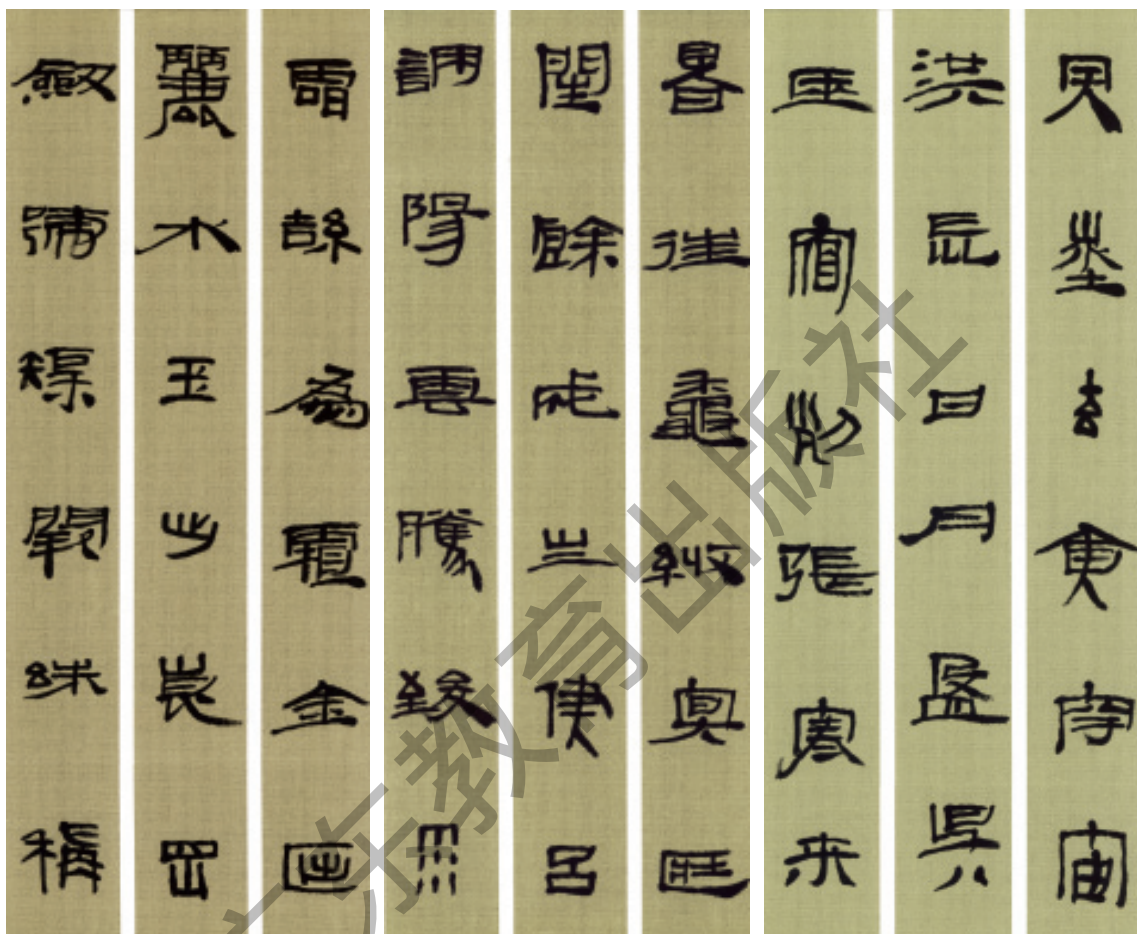 天地玄黃宇宙
洪荒日月盈昃
辰宿列張寒來
暑往秋收冬藏
閏餘成歲律呂
調陽雲騰致雨
露結為霜金生
麗水玉出崑岡
劍號巨闕珠稱
广东教育出版社